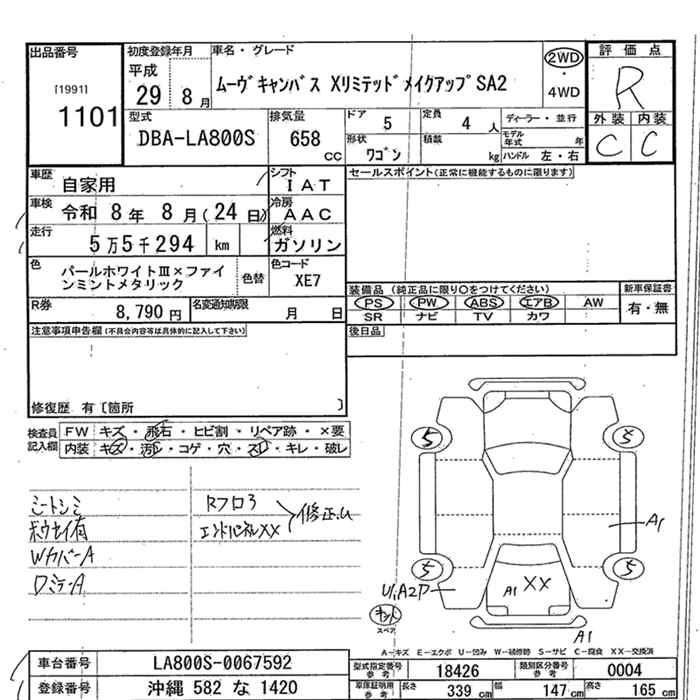 出品番号 初度登録年月 車名・グレード 評価点
[1991] 平成 2WD R
1101 29 8月 ムーヴキャンバス XリミテッドメイクアップSA2 ・ 4WD
型式 排気量 ドア 5 定員 4人 ディーラー・並行 外装 内装
DBA-LA800S 658 CC 形状 ワゴン 積載 kg モデル年式 年 C C
ハンドル 左・右
車歴 自家用 シフト IAT セールスポイント(正常に機能するものに限ります)
車検 令和 8年 8月(24日) 冷房 AAC
走行 5万5千294 km 燃料 ガソリン
色 パールホワイトⅢ×ファインミントメタリック 色替 色コード XE7
装備品 (純正品に限り○をつけてください) 新車保証書
PS PW ABS エアB AW 有・無
SR ナビ TV カワ
R券 8,790円 名変通知期限 月 日
注意事項申告欄(不具合内容等は具体的に記入して下さい) 後日品
修復歴 有〔箇所 〕
検査員記入欄 FW キズ・飛石・ヒビ割・リペア跡・×要
内装 キズ・汚レ・コゲ・穴・スレ・キレ・破レ
シートシミ Rフロア
ボウセイ有 エンドパネルXX 修正ム
WカバーA
ロミラーA
5 5
A1
5 5
U1A2P A1 XX
スペア
A1
A-キズ E-エクボ U-凹み W-補修跡 S-サビ C-腐食 XX-交換済
車台番号 LA800S-0067592 型式指定番号 参考 18426 類別区分番号 参考 0004
登録番号 沖縄 582 な 1420 車庫証明用 参考 長さ 339 cm 幅 147 cm 高さ 165 cm